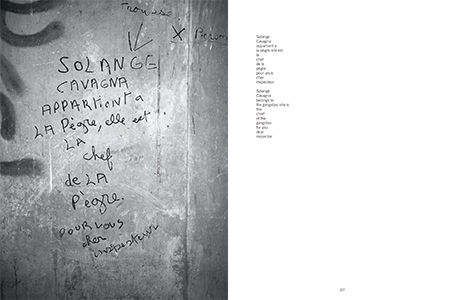 SOLANGE
CAVAGNA
APPARTIENT a
LA Pègre, elle est
LA
chef
de LA
Pègre.
POUR VOUS
cher
inspecteur
Solange
Cavagna
appartient a
la pègre elle est
la
chef
de la
pègre
pour vous
cher
inspecteur
Solange
Cavagna
belongs to
the gangsters she is
the
chief
of the
gangsters
for you
dear
inspector